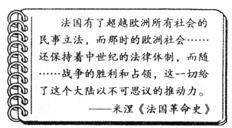 法国有了超越欧洲所有社会的
民事立法，而那时的欧洲社会……
还保持着中世纪的法律体制，而随
……战争的胜利和占领，这一切给
了这个大陆以不可思议的推动力。
——米涅《法国革命史》